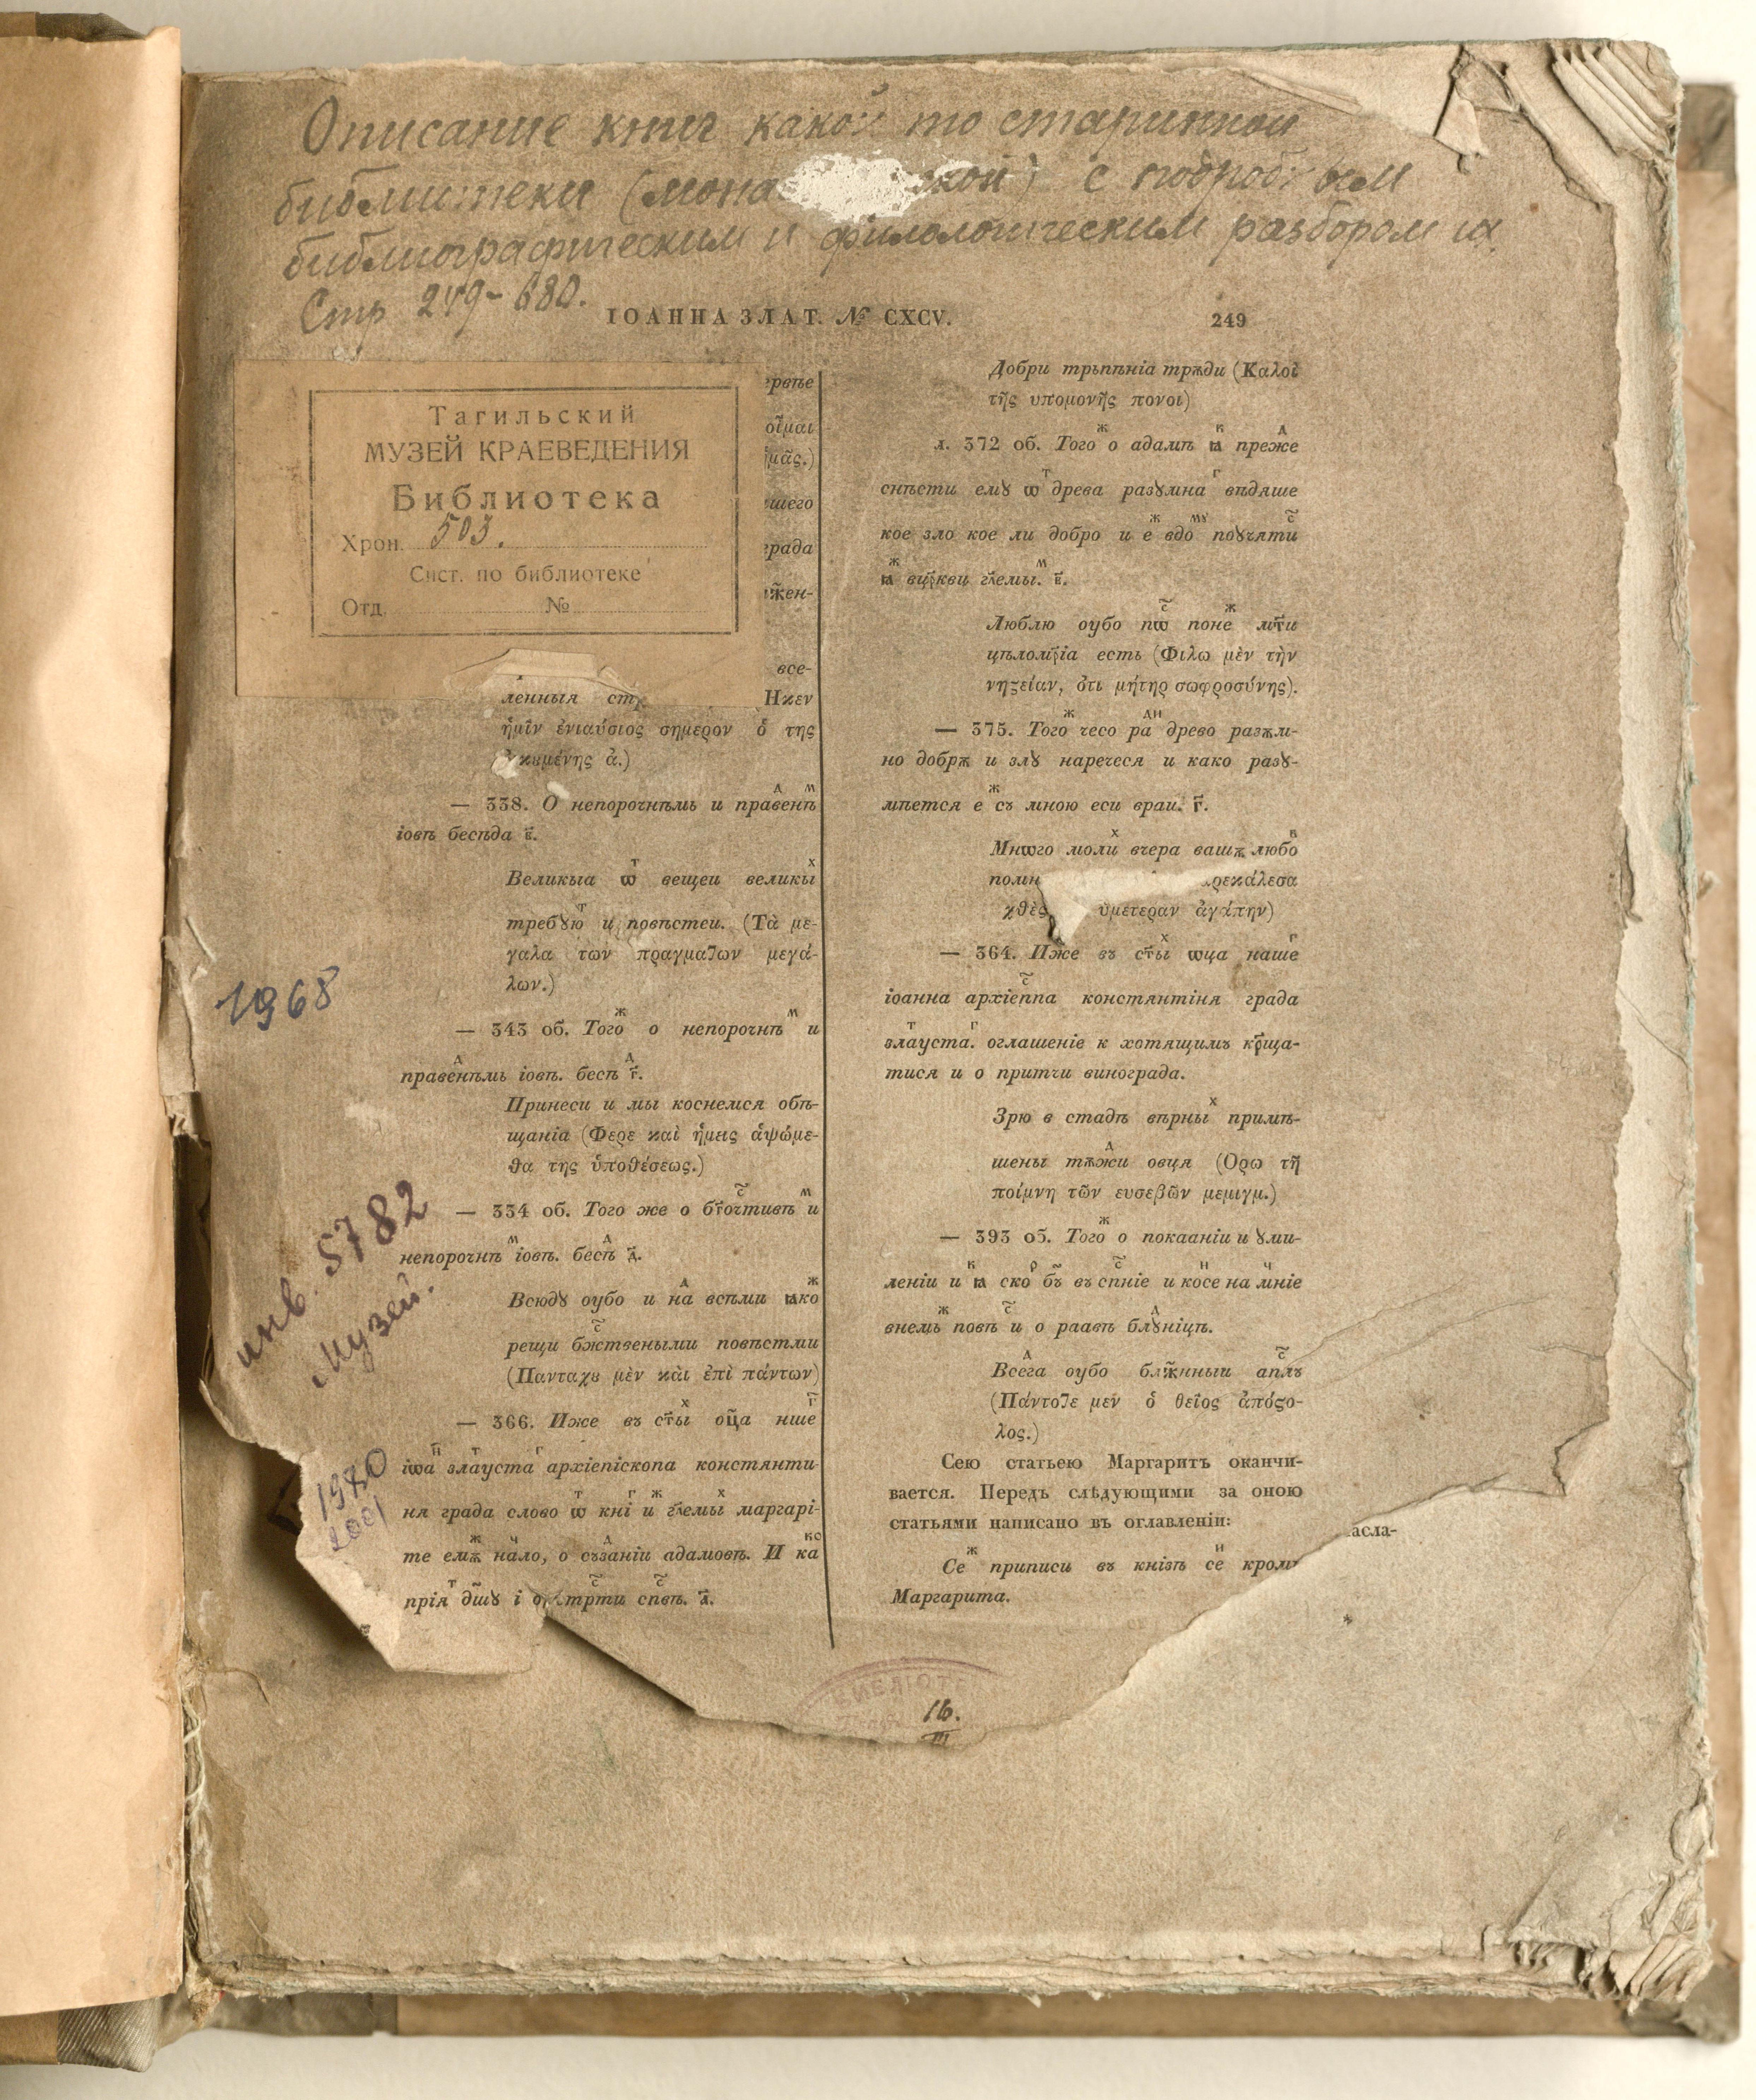 Описание книг какой то старинной
библиотеки (мона ской) с подробным
библиографическим и филологическим разбором их.
Стр 249-680.
ІОАННА ЗЛАТ. № CXCV.
249
Тагильский
МУЗЕЙ КРАЕВЕДЕНИЯ
Библиотека
Хрон. 503.
Сист. по библиотеке
Отд. №
рвѣе
шего
града
все-
ленныя Ηκεν
ἡμῖν ἐνιαύσιος σημερον ὁ της
ἀ.)
— 338. О непорочнѣмь и праве̾нѣ
іовѣ бесѣда в҃.
Великыа ѿ вещеи великы
требꙋю и повѣстеи. (Τὰ με-
γαλα τῶν πραγμαΤων μεγά-
λων.)
— 343 об. Того о непорочнѣ и
правенѣмь іовѣ. бесѣ г҃.
Принеси и мы коснемся обѣ-
щаніа (Φερε καὶ ἡμεις ἁψώμε-
θα της ὑποθέσεως.)
— 334 об. Того же о бг҃очтивѣ и
непорочнѣ іовѣ. бесѣ д҃.
Всюдꙋ оубо и на всѣми ꙗко
рещи бжⷭ҇твеными повѣстми
(Πανταχȣ μὲν κὰι ἐπὶ πάντων)
— 366. Иже въ ст҃ы оц҃а нше
іѡа злауста архіепіскопа констянти-
ня града слово ѿ кні и гл҃емы маргарі-
те емѫ нало, о съзаніи адамовѣ. И ка
прія дш҃ꙋ і о стрти спвѣ. а҃.
Добри трьпѣніа трѫди (Καλοὶ
τῆς υπομονῆς πονοι)
л. 372 об. Того о адамѣ ꙗ преже
снѣсти емꙋ ѿ древа разꙋмна вѣдяше
кое зло кое ли добро и е вдо поꙋчяти
ꙗ вцр҃кви гл҃емы. в҃.
Люблю оубо пѡ поне мт҃и
цѣломр҃іа есть (Φιλω μὲν τὴν
νηϛείαν, ὁτι μήτηρ σωφροσύνης).
— 375. Того чесо ра древо разѫм-
но добрѫ и злꙋ наречеся и како разꙋ-
мѣется е съ мною еси враи. г҃.
Мнѡго моли вчера вашѫ любо
помн ρεκάλεσα
χθὲς ὑμετεραν ἀγάπην)
— 364. Иже въ ст҃ы ѡца наше
іоанна архіеппа констянтіня града
злауста. оглашеніе к хотящимъ кр҃ща-
тися и о притчи винограда.
Зрю в стадѣ вѣрны примѣ-
шены тѫжи овця (Ορω τῇ
ποίμνη τῶν ευσεβῶν μεμιγμ.)
— 393 об. Того о покааніи и ꙋми-
леніи и ꙗ ско бъ въ спніе и косе на мніе
внемь повѣ и о раавѣ блꙋніцѣ.
Всега оубо блж҃нныи аплъ
(ΠάντοΤε μεν ὁ θεῖος ἀπόϛο-
λος.)
Сею статьею Маргаритъ оканчи-
вается. Передъ слѣдующими за оною
статьями написано въ оглавленіи:
Се приписи въ кнізѣ се кромѣ
Маргарита.
асла-
*
1968
инв. 5782
Музей.
1980
2001
БИБЛІОТ
16.
III